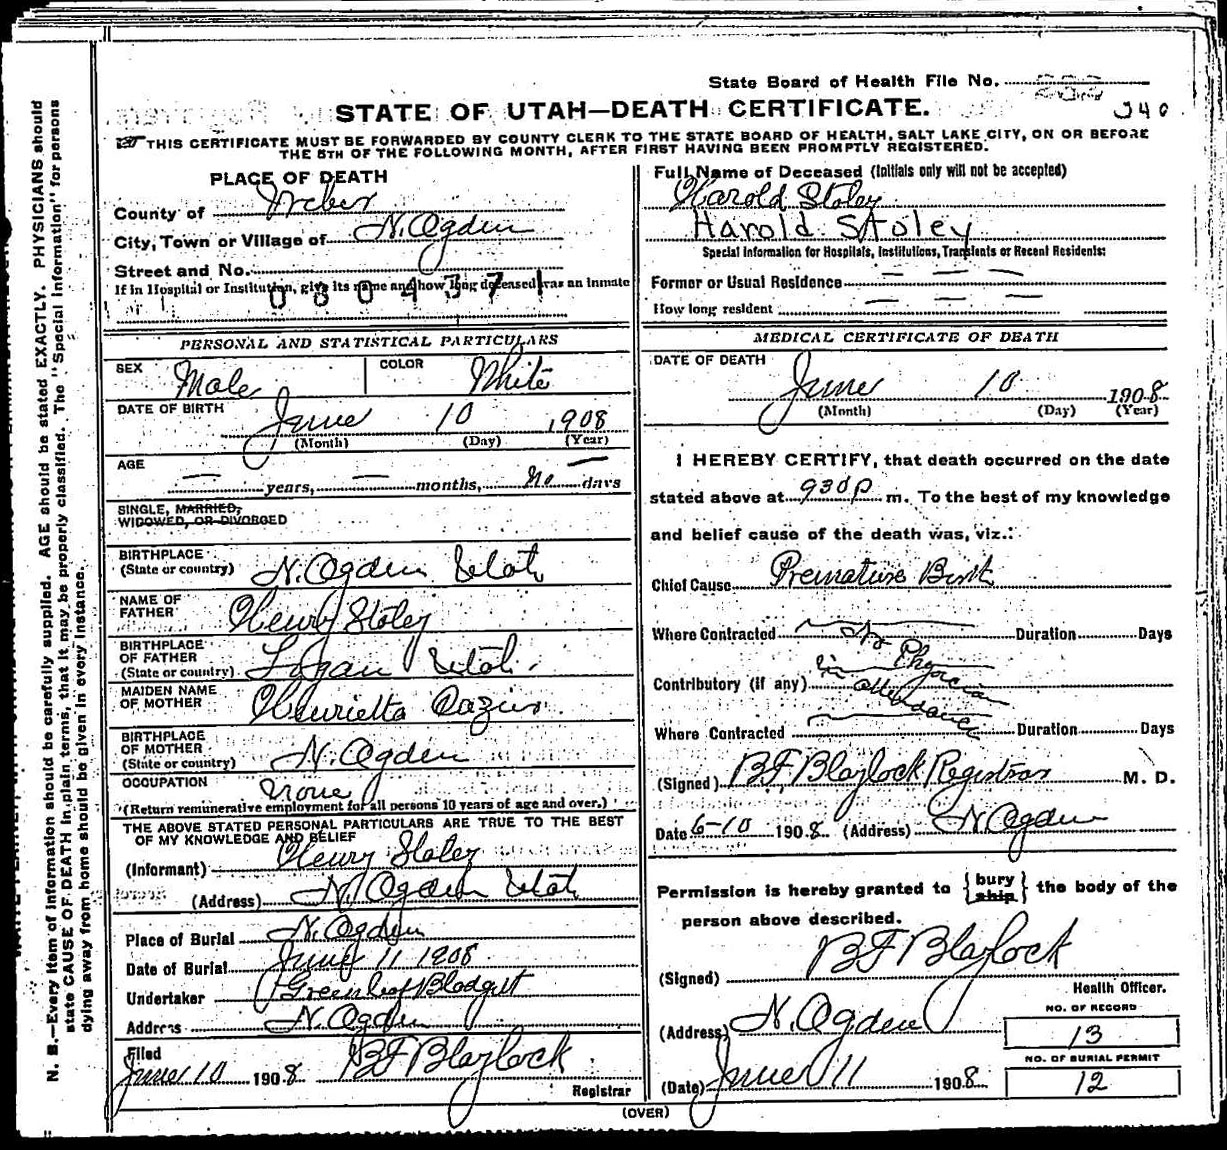 State Board of Health File No. 232
340
STATE OF UTAH—DEATH CERTIFICATE.
THIS CERTIFICATE MUST BE FORWARDED BY COUNTY CLERK TO THE STATE BOARD OF HEALTH, SALT LAKE CITY, ON OR BEFORE
THE 5TH OF THE FOLLOWING MONTH, AFTER FIRST HAVING BEEN PROMPTLY REGISTERED.
PLACE OF DEATH
County of Weber
City, Town or Village of N. Ogden
Street and No.
If in Hospital or Institution, give its name and how long deceased was an inmate
0804371
PERSONAL AND STATISTICAL PARTICULARS
SEX Male COLOR White
DATE OF BIRTH June 10 1908
(Month) (Day) (Year)
AGE
— years, — months, no days
SINGLE, MARRIED,
WIDOWED, OR DIVORCED
BIRTHPLACE
(State or country) N. Ogden Utah
NAME OF
FATHER Henry Stoley
BIRTHPLACE
OF FATHER
(State or country) Logan Utah.
MAIDEN NAME
OF MOTHER Henrietta
BIRTHPLACE
OF MOTHER
(State or country) N. Ogden
OCCUPATION None
(Return remunerative employment for all persons 10 years of age and over.)
THE ABOVE STATED PERSONAL PARTICULARS ARE TRUE TO THE BEST
OF MY KNOWLEDGE AND BELIEF
(Informant) Henry Stoley
(Address) N. Ogden Utah
Place of Burial N. Ogden
Date of Burial June 11 1908
Undertaker Greenleaf Blodgett
Address N. Ogden
Filed
June 10 1908 BF Blaylock
Registrar
Full Name of Deceased (Initials only will not be accepted)
Harold Stoley
Harold Stoley
Special Information for Hospitals, Institutions, Transients or Recent Residents:
Former or Usual Residence — — —
How long resident — — —
MEDICAL CERTIFICATE OF DEATH
DATE OF DEATH
June 10 1908
(Month) (Day) (Year)
I HEREBY CERTIFY, that death occurred on the date
stated above at 930 p m. To the best of my knowledge
and belief cause of the death was, viz.:
Chief Cause Premature Birth
Where Contracted Duration Days
No Physician
in attendance
Contributory (if any)
Where Contracted Duration Days
(Signed) BF Blaylock Registrar M. D.
Date 6-10 1908 (Address) N. Ogden
Permission is hereby granted to {bury ship} the body of the
person above described.
(Signed) BF Blaylock
Health Officer.
(Address) N. Ogden
(Date) June 11 1908
NO. OF RECORD
13
NO. OF BURIAL PERMIT
12
(OVER)
N. B.—Every item of information should be carefully supplied. AGE should be stated EXACTLY. PHYSICIANS should
state CAUSE OF DEATH in plain terms, that it may be properly classified. The "Special Information" for persons
dying away from home should be given in every instance.